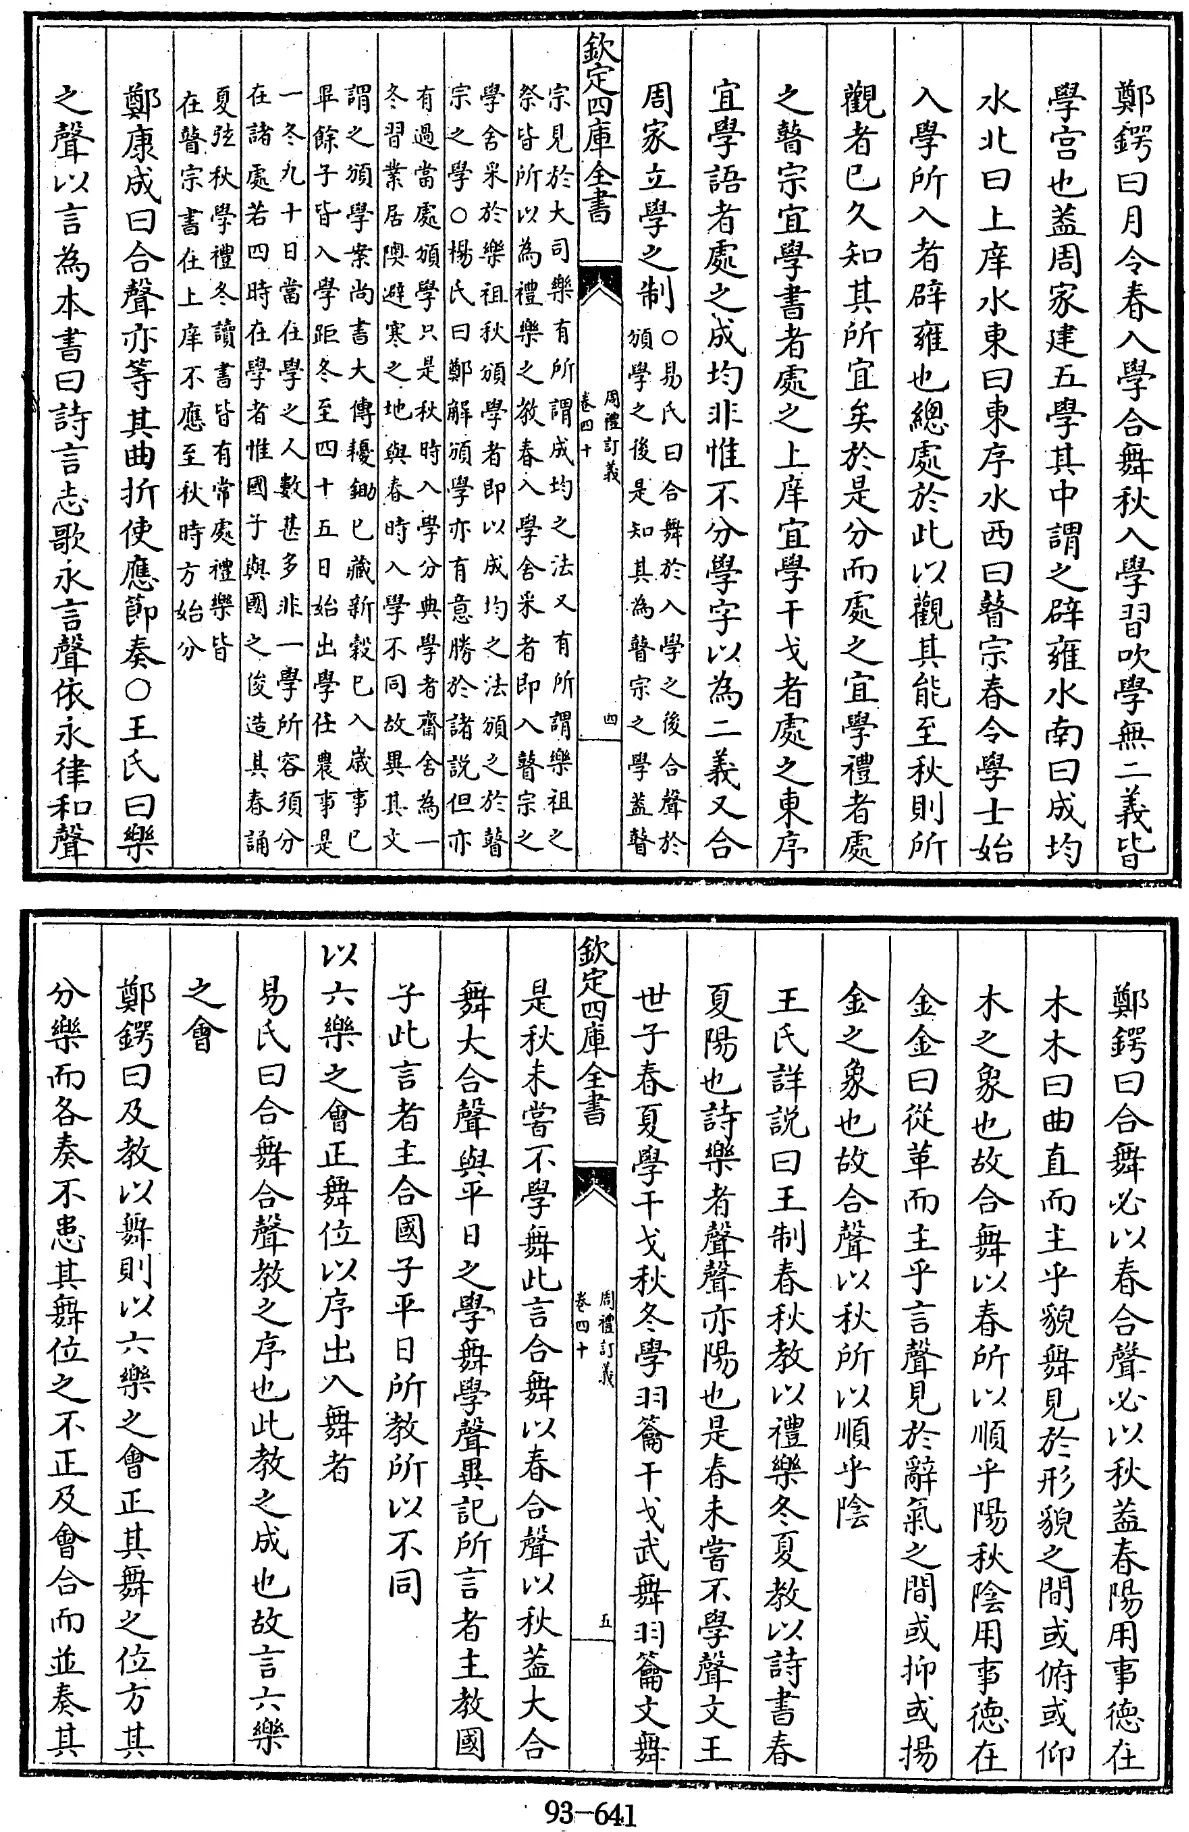 鄭鍔曰月令春入學合舞秋入學習吹學無二義皆
學宫也葢周家建五學其中謂之辟雍水南曰成均
水北曰上庠水東曰東序水西曰瞽宗春令學士始
入學所入者辟雍也總處於此以觀其能至秋則所
觀者已久知其所宜矣於是分而處之宜學禮者處
之瞽宗宜學書者處之上庠宜學干戈者處之東序
宜學語者處之成均非惟不分學字以為二義又合
周家立學之制
○易氏曰合舞於入學之後合聲於
頒學之後是知其為瞽宗之學葢瞽
欽定四庫全書
周禮訂義
卷四十
四
宗見於大司樂有所謂成均之法又有所謂樂祖之
祭皆所以為禮樂之教春入學舍采者即入瞽宗之
學舍采於樂祖秋頒學者即以成均之法頒之於瞽
宗之學○楊氏曰鄭解頒學亦有意勝於諸説但亦
有過當處頒學只是秋時入學分典學者齋舍為一
冬習業居隩避寒之地與春時入學不同故異其文
謂之頒學案尚書大傳耰鋤已藏新穀已入歲事已
畢餘子皆入學距冬至四十五日始出學任農事是
一冬九十日當在學之人數甚多非一學所容須分
在諸處若四時在學者惟國子與國之俊造其春誦
夏弦秋學禮冬讀書皆有常處禮樂皆
在瞽宗書在上庠不應至秋時方始分
鄭康成曰合聲亦等其曲折使應節奏○王氏曰樂
之聲以言為本書曰詩言志歌永言聲依永律和聲
鄭鍔曰合舞必以春合聲必以秋葢春陽用事德在
木木曰曲直而主乎貌舞見於形貌之間或俯或仰
木之象也故合舞以春所以順乎陽秋陰用事德在
金金曰從革而主乎言聲見於辭氣之間或抑或揚
金之象也故合聲以秋所以順乎陰
王氏詳説曰王制春秋教以禮樂冬夏教以詩書春
夏陽也詩樂者聲聲亦陽也是春未嘗不學聲文王
世子春夏學干戈秋冬學羽籥干戈武舞羽籥文舞
欽定四庫全書
周禮訂義
卷四十
五
是秋未嘗不學舞此言合舞以春合聲以秋葢大合
舞大合聲與平日之學舞學聲異記所言者主教國
子此言者主合國子平日所教所以不同
以六樂之會正舞位以序出入舞者
易氏曰合舞合聲教之序也此教之成也故言六樂
之會
鄭鍔曰及教以舞則以六樂之會正其舞之位方其
分樂而各奏不患其舞位之不正及會合而並奏其
93-641